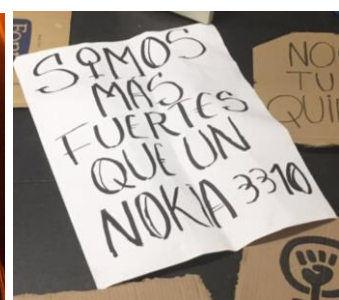 SOMOS
MAS
FUERTES
QUE UN
NOKIA 3310
NO
TU
QUI